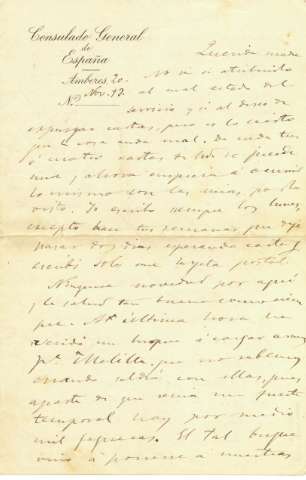 Consulado General
de
España
Amberes 20.
Nov. 93.
Querida madre
No sé si atribuirlo
al mal estado del
servicio y si al deseo de
cartas, pero es lo cierto
que la cosa anda mal, de cada tres
ó cuatro cartas de Vds. se pierde
una, y ahora empieza á ocurrir
lo mismo con las mias, por lo
visto. Yo escribo siempre los lunes,
excepto hace tres semanas que dejé
pasar dos dias esperando carta y
escribí solo una tarjeta postal.
Ninguna novedad por aquí
y la salud tan buena como siem
pre. Á última hora ha
venido un buque á cargar
pª Melilla, que no sabemos
cuando saldrá con ellas, pues
aparte de que reina un fuerte
temporal hay por medio
mil pequeñas. El tal buque
vino á ponerse á nuestras